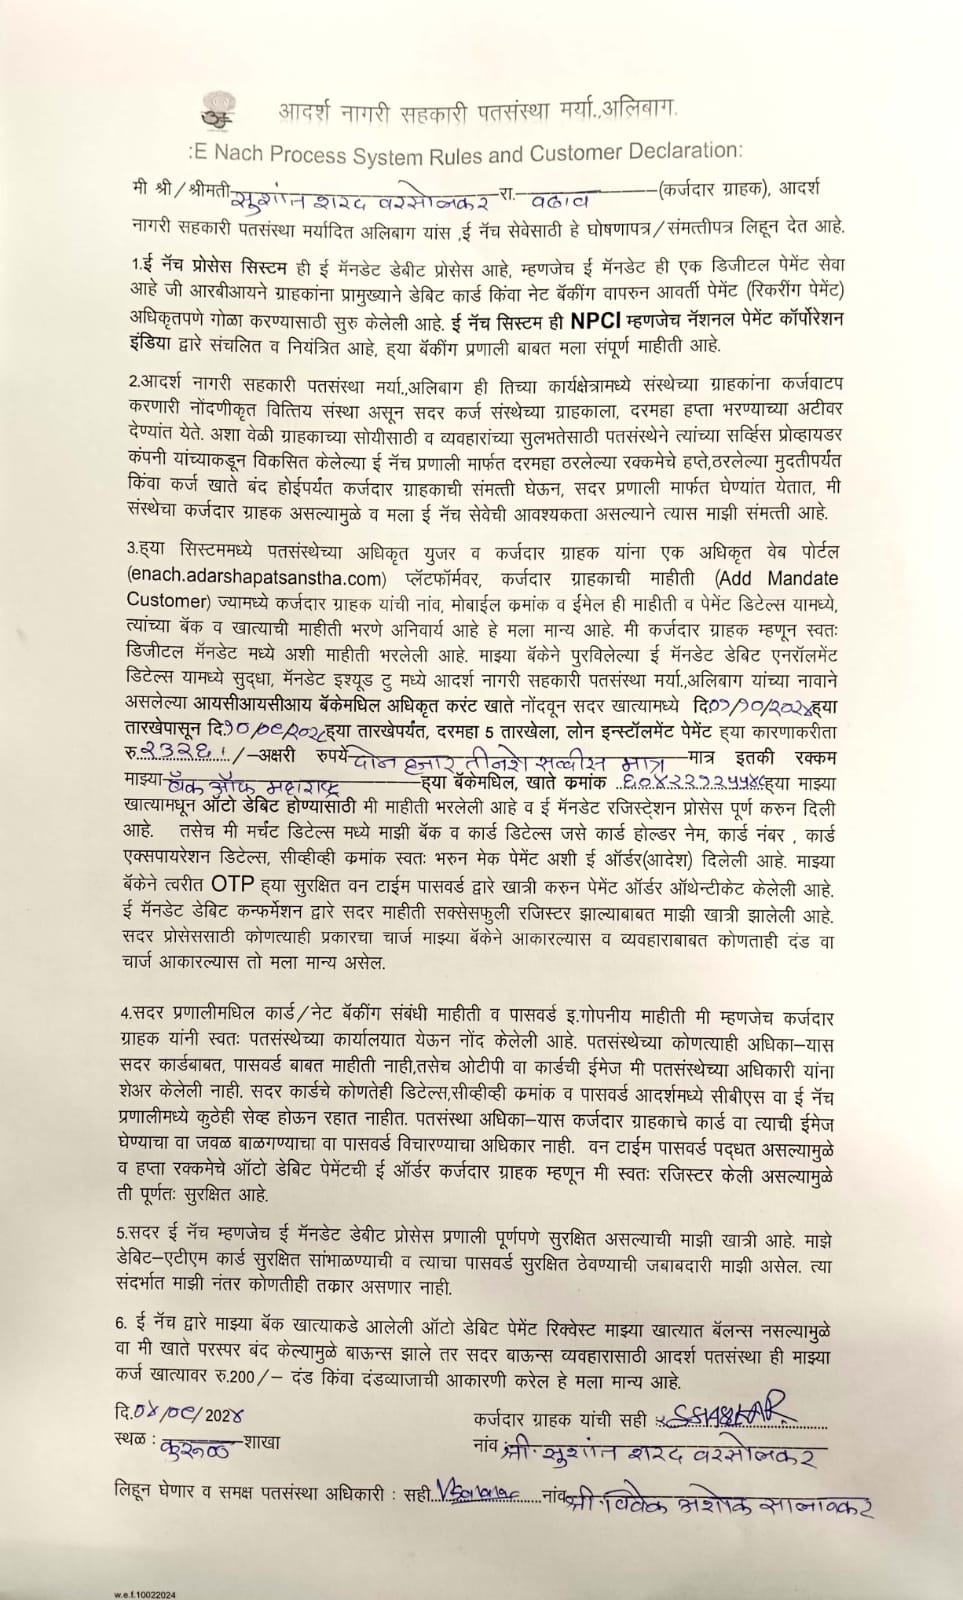 आदर्श नागरी सहकारी पतसंस्था मर्या.,अलिबाग.
:E Nach Process System Rules and Customer Declaration:
मी श्री/श्रीमती सुशांत शरद वरसोलकर रा. वढाव (कर्जदार ग्राहक), आदर्श
नागरी सहकारी पतसंस्था मर्यादित अलिबाग यांस ,ई नॅच सेवेसाठी हे घोषणापत्र/संमत्तीपत्र लिहून देत आहे.
1.ई नॅच प्रोसेस सिस्टम ही ई मॅनडेट डेबीट प्रोसेस आहे, म्हणजेच ई मॅनडेट ही एक डिजीटल पेमेंट सेवा
आहे जी आरबीआयने ग्राहकांना प्रामुख्याने डेबिट कार्ड किंवा नेट बॅकींग वापरुन आवर्ती पेमेंट (रिकरींग पेमेंट)
अधिकृतपणे गोळा करण्यासाठी सुरु केलेली आहे. ई नॅच सिस्टिम ही NPCI म्हणजेच नॅशनल पेमेंट कॉर्पोरेशन
इंडिया द्वारे संचलित व नियंत्रित आहे, ह्या बॅकींग प्रणाली बाबत मला संपूर्ण माहीती आहे.
2.आदर्श नागरी सहकारी पतसंस्था मर्या.,अलिबाग ही तिच्या कार्यक्षेत्रामध्ये संस्थेच्या ग्राहकांना कर्जवाटप
करणारी नोंदणीकृत वित्तिय संस्था असून सदर कर्ज संस्थेच्या ग्राहकाला, दरमहा हप्ता भरण्याच्या अटीवर
देण्यांत येते. अशा वेळी ग्राहकाच्या सोयीसाठी व व्यवहारांच्या सुलभतेसाठी पतसंस्थेने त्यांच्या सर्व्हिस प्रोव्हायडर
कंपनी यांच्याकडून विकसित केलेल्या ई नॅच प्रणाली मार्फत दरमहा ठरलेल्या रक्कमेचे हप्ते,ठरलेल्या मुदतीपर्यंत
किंवा कर्ज खाते बंद होईपर्यंत कर्जदार ग्राहकाची संमत्ती घेऊन, सदर प्रणाली मार्फत घेण्यांत येतात, मी
संस्थेचा कर्जदार ग्राहक असल्यामुळे व मला ई नॅच सेवेची आवश्यकता असल्याने त्यास माझी संमत्ती आहे.
3.ह्या सिस्टममध्ये पतसंस्थेच्या अधिकृत युजर व कर्जदार ग्राहक यांना एक अधिकृत वेब पोर्टल
(enach.adarshapatsanstha.com) प्लॅटफॉर्मवर, कर्जदार ग्राहकाची माहीती (Add Mandate
Customer) ज्यामध्ये कर्जदार ग्राहक यांची नांव, मोबाईल क्रमांक व ईमेल ही माहीती व पेमेंट डिटेल्स यामध्ये,
त्यांच्या बॅक व खात्याची माहीती भरणे अनिवार्य आहे हे मला मान्य आहे. मी कर्जदार ग्राहक म्हणून स्वतः
डिजीटल मॅनडेट मध्ये अशी माहीती भरलेली आहे. माझ्या बॅकेने पुरविलेल्या ई मॅनडेट डेबिट एनरॉलमेंट
डिटेल्स यामध्ये सुद्धा, मॅनडेट इश्यूड टु मध्ये आदर्श नागरी सहकारी पतसंस्था मर्या.,अलिबाग यांच्या नावाने
असलेल्या आयसीआयसीआय बॅकेमधिल अधिकृत करंट खाते नोंदवून सदर खात्यामध्ये दि०१/१०/२०२४ह्या
तारखेपासून दि.१०/०९/२०२८ह्या तारखेपर्यंत, दरमहा 5 तारखेला, लोन इन्स्टॉलमेंट पेमेंट ह्या कारणाकरीता
रु.२३२६/–अक्षरी रुपये दोन हजार तीनशे सव्वीस मात्र मात्र इतकी रक्कम
माझ्या बँक ऑफ महाराष्ट्र ह्या बॅकेमधिल, खाते कमांक ६०४२२१२५५४९ह्या माझ्या
खात्यामधून ऑटो डेबिट होण्यासाठी मी माहीती भरलेली आहे व ई मॅनडेट रजिस्टे्शन प्रोसेस पूर्ण करुन दिली
आहे. तसेच मी मर्चंट डिटेल्स मध्ये माझी बॅक व कार्ड डिटेल्स जसे कार्ड होल्डर नेम, कार्ड नंबर , कार्ड
एक्सपायरेशन डिटेल्स, सीव्हीव्ही क्रमांक स्वतः भरुन मेक पेमेंट अशी ई ऑर्डर(आदेश) दिलेली आहे. माझ्या
बॅकेने त्वरीत OTP ह्या सुरक्षित वन टाईम पासवर्ड द्वारे खात्री करुन पेमेंट ऑर्डर ऑथेन्टीकेट केलेली आहे.
ई मॅनडेट डेबिट कन्फर्मेशन द्वारे सदर माहीती सक्सेसफुली रजिस्टर झाल्याबाबत माझी खात्री झालेली आहे.
सदर प्रोसेससाठी कोणत्याही प्रकारचा चार्ज माझ्या बॅकेने आकारल्यास व व्यवहाराबाबत कोणताही दंड वा
चार्ज आकारल्यास तो मला मान्य असेल.
4.सदर प्रणालीमधिल कार्ड/नेट बॅकींग संबंधी माहीती व पासवर्ड इ.गोपनीय माहीती मी म्हणजेच कर्जदार
ग्राहक यांनी स्वतः पतसंस्थेच्या कार्यालयात येऊन नोंद केलेली आहे. पतसंस्थेच्या कोणत्याही अधिका–यास
सदर कार्डबाबत, पासवर्ड बाबत माहीती नाही,तसेच ओटीपी वा कार्डची ईमेज मी पतसंस्थेच्या अधिकारी यांना
शेअर केलेली नाही. सदर कार्डचे कोणतेही डिटेल्स,सीव्हीव्ही क्रमांक व पासवर्ड आदर्शमध्ये सीबीएस वा ई नॅच
प्रणालीमध्ये कुठेही सेव्ह होऊन रहात नाहीत. पतसंस्था अधिका–यास कर्जदार ग्राहकाचे कार्ड वा त्याची ईमेज
घेण्याचा वा जवळ बाळगण्याचा वा पासवर्ड विचारण्याचा अधिकार नाही. वन टाईम पासवर्ड पद्धत असल्यामुळे
व हप्ता रक्कमेचे ऑटो डेबिट पेमेंटची ई ऑर्डर कर्जदार ग्राहक म्हणून मी स्वतः रजिस्टर केली असल्यामुळे
ती पूर्णतः सुरक्षित आहे.
5.सदर ई नॅच म्हणजेच ई मॅनडेट डेबीट प्रोसेस प्रणाली पूर्णपणे सुरक्षित असल्याची माझी खात्री आहे. माझे
डेबिट–एटीएम कार्ड सुरक्षित सांभाळण्याची व त्याचा पासवर्ड सुरक्षित ठेवण्याची जबाबदारी माझी असेल. त्या
संदर्भात माझी नंतर कोणतीही तकार असणार नाही.
6. ई नॅच द्वारे माझ्या बॅक खात्याकडे आलेली ऑटो डेबिट पेमेंट रिक्वेस्ट माझ्या खात्यात बॅलन्स नसल्यामुळे
वा मी खाते परस्पर बंद केल्यामुळे बाऊन्स झाले तर सदर बाऊन्स व्यवहारासाठी आदर्श पतसंस्था ही माझ्या
कर्ज खात्यावर रु.200/– दंड किंवा दंडव्याजाची आकारणी करेल हे मला मान्य आहे.
दि.०४/०९/202४
कर्जदार ग्राहक यांची सही :
स्थळ : कुरूळ शाखा
नांव : श्री. सुशांत शरद वरसोलकर
लिहून घेणार व समक्ष पतसंस्था अधिकारी : सही नांव श्री. विवेक अशोक सानावकर
w.e.f.10022024